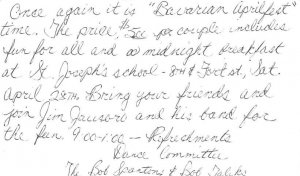 Once again it is "Bavarian Aprilfest"
time. The price, $5.00 per couple includes
fun for all and a midnight breakfast
at St. Joseph's school - 8th & Fort st, Sat.
April 28th. Bring your friends and
join Jim and his band for
the fun. 9:00-1:00 -- Refreshments
Dance Committee
The Bob Spartens & Bob